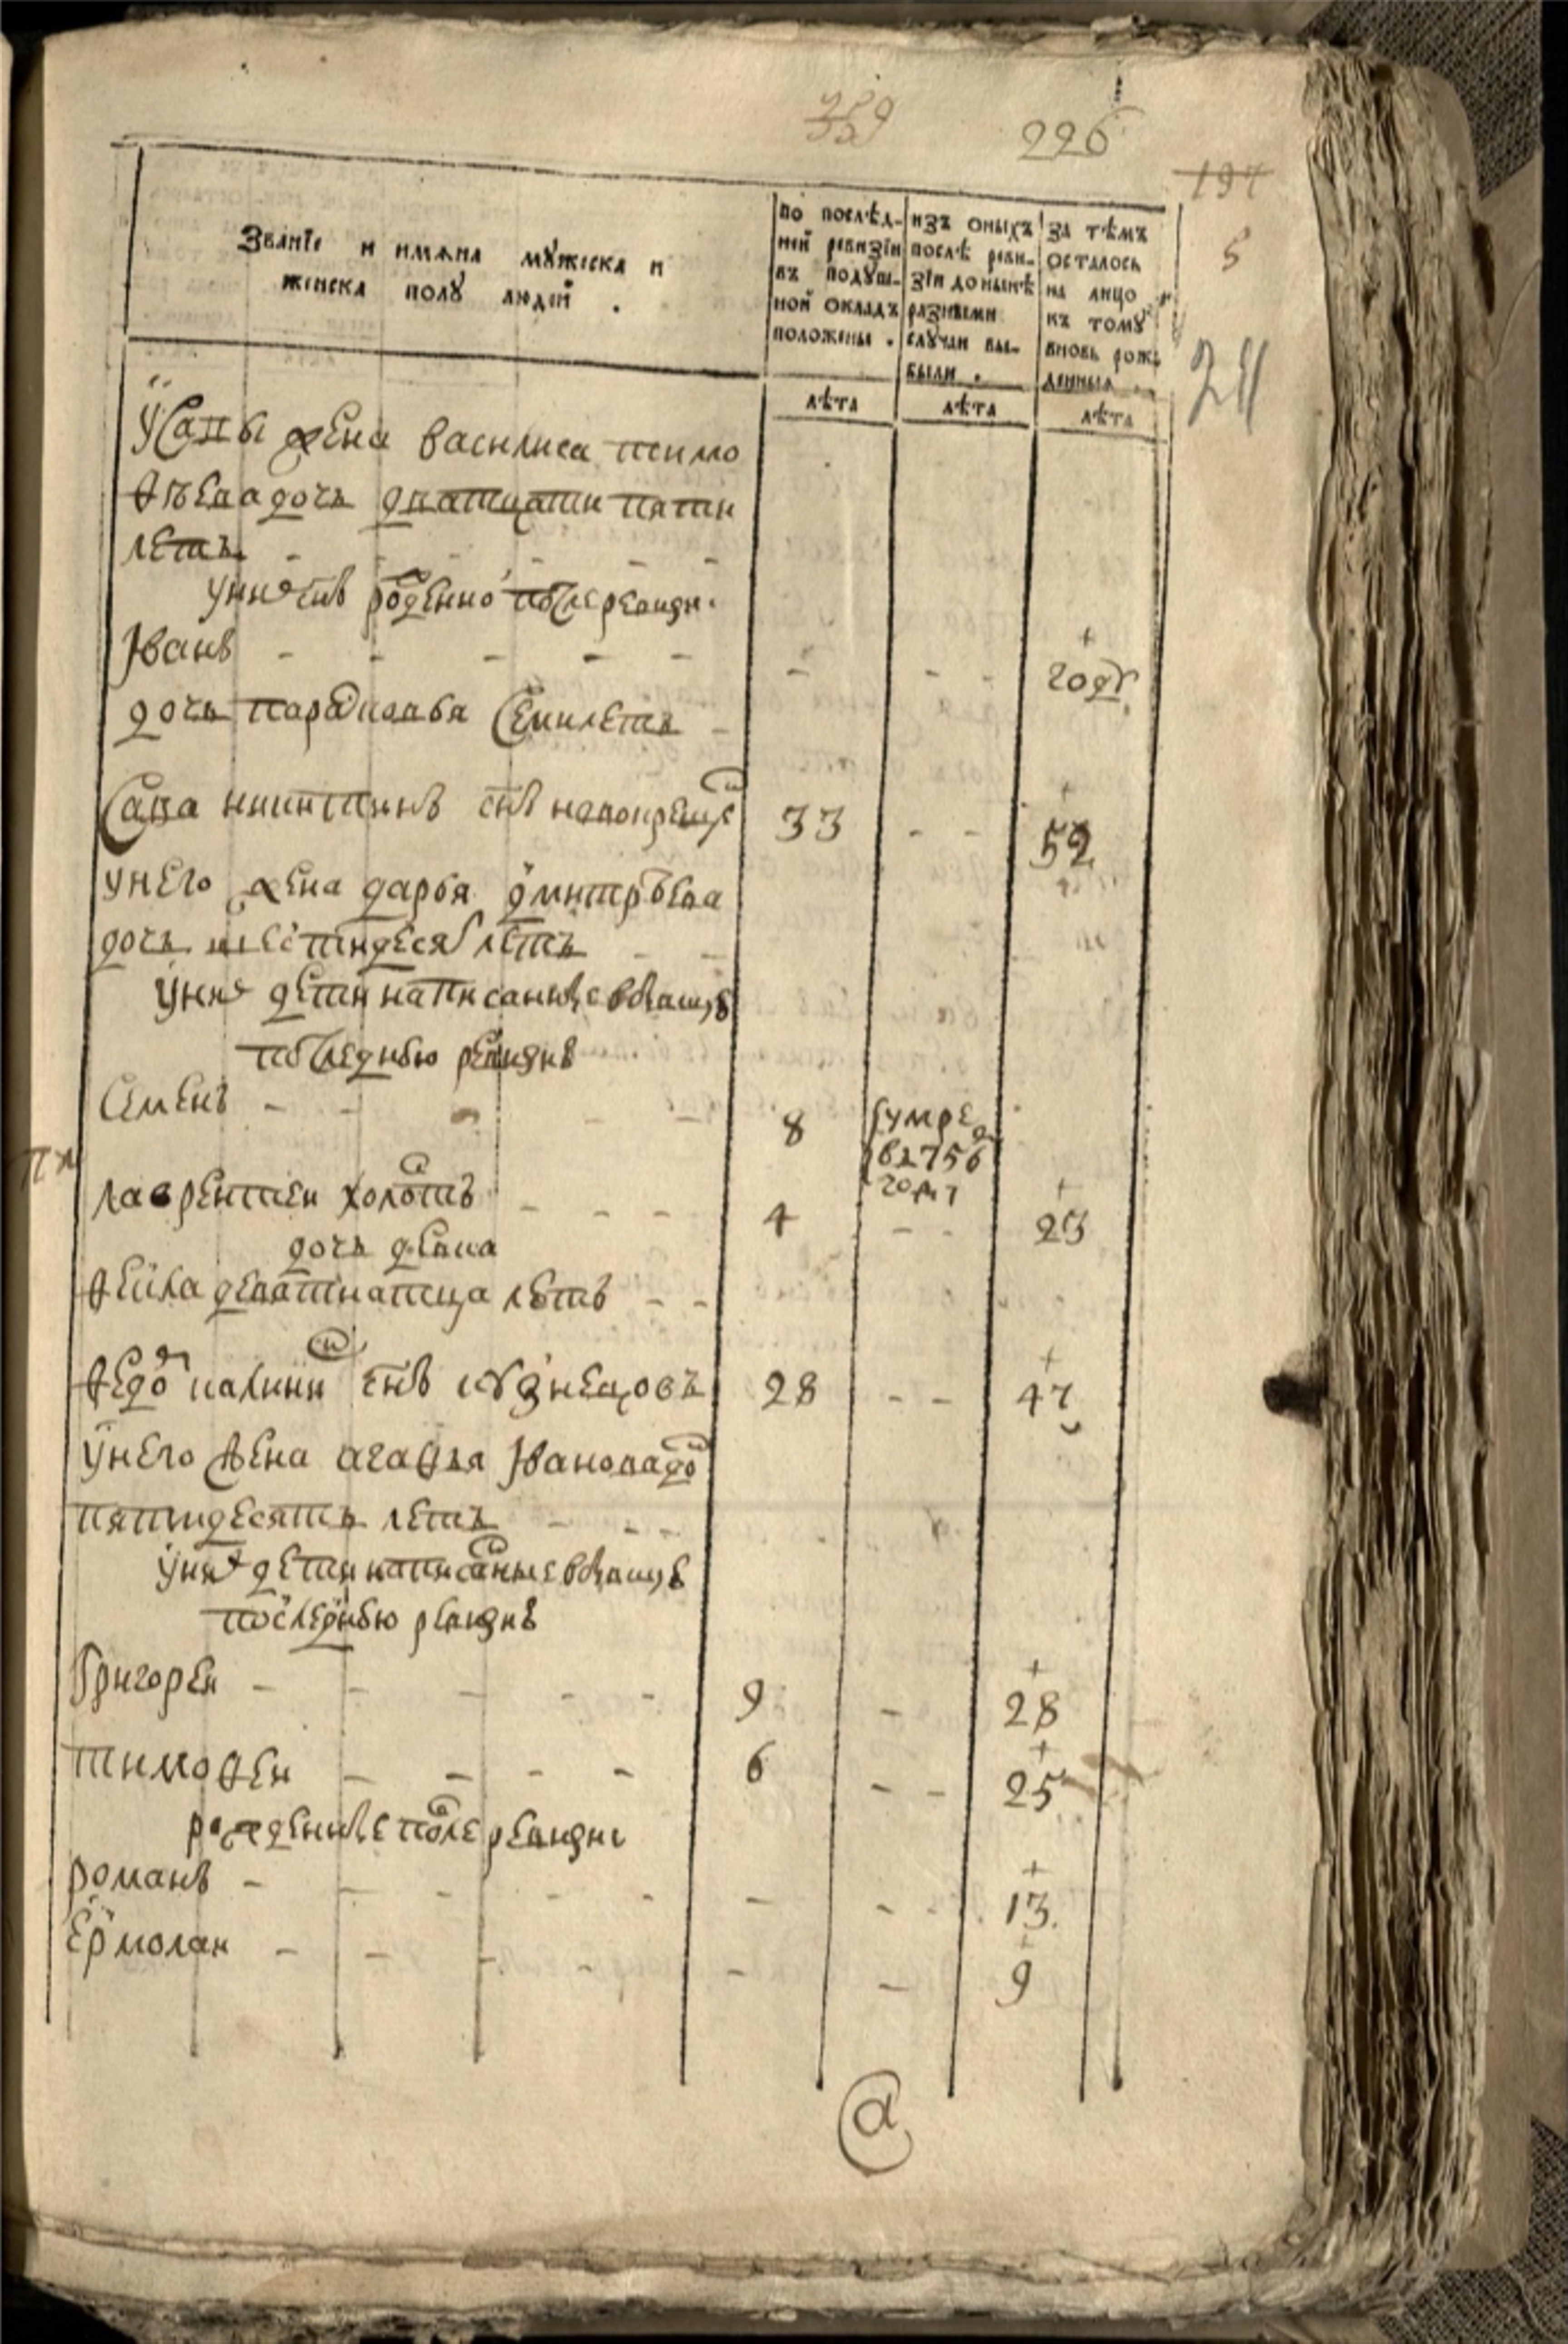 226
197
5
Званїе и имѧна мꙋжеска и
женска полꙋ людей .
по послѣд-
ней ревизїи
въ подꙋш-
ной окладъ
положены .
изъ оныхъ
послѣ реви-
зїи до нынѣ
разными
слꙋчаи вы-
были .
за тѣмъ
осталось
на лицо
къ томꙋ
вновь рож-
денныя .
лѣта
лѣта
лѣта
усавы жена василиса тимо
ѳѣева дочь дватцати пяти
летъ - - - - -
унихъ снъ роденно после ревизи
Іванъ - - - - - - - - годъ
дочь парасковья семи летъ -
Сава никитинъ снъ новокреще 33 - - 52
унего жена дарья дмитрѣева
дочь шестидесят летъ - -
уних дети написанные в бывшую
последнюю ревизию
Семенъ - - - - 8 умре
в 1756
году
лаврентеи холостъ - - - - 4 - - 23
дочь девка
Ѳекла девятнатца летъ - -
Ѳедо калинин снъ кузнецовъ 28 - - 47
унего жена агаѳья Іванова до
пятидесятъ летъ - - -
уних дети написанные в бывшую
последнюю ревизию
Григореи - - - - - 9 - 28
тимоѳеи - - - - 6 - - 25
рожденные после ревизи
романъ - - - - - - - - - 13
Ермолаи - - - - - - 9